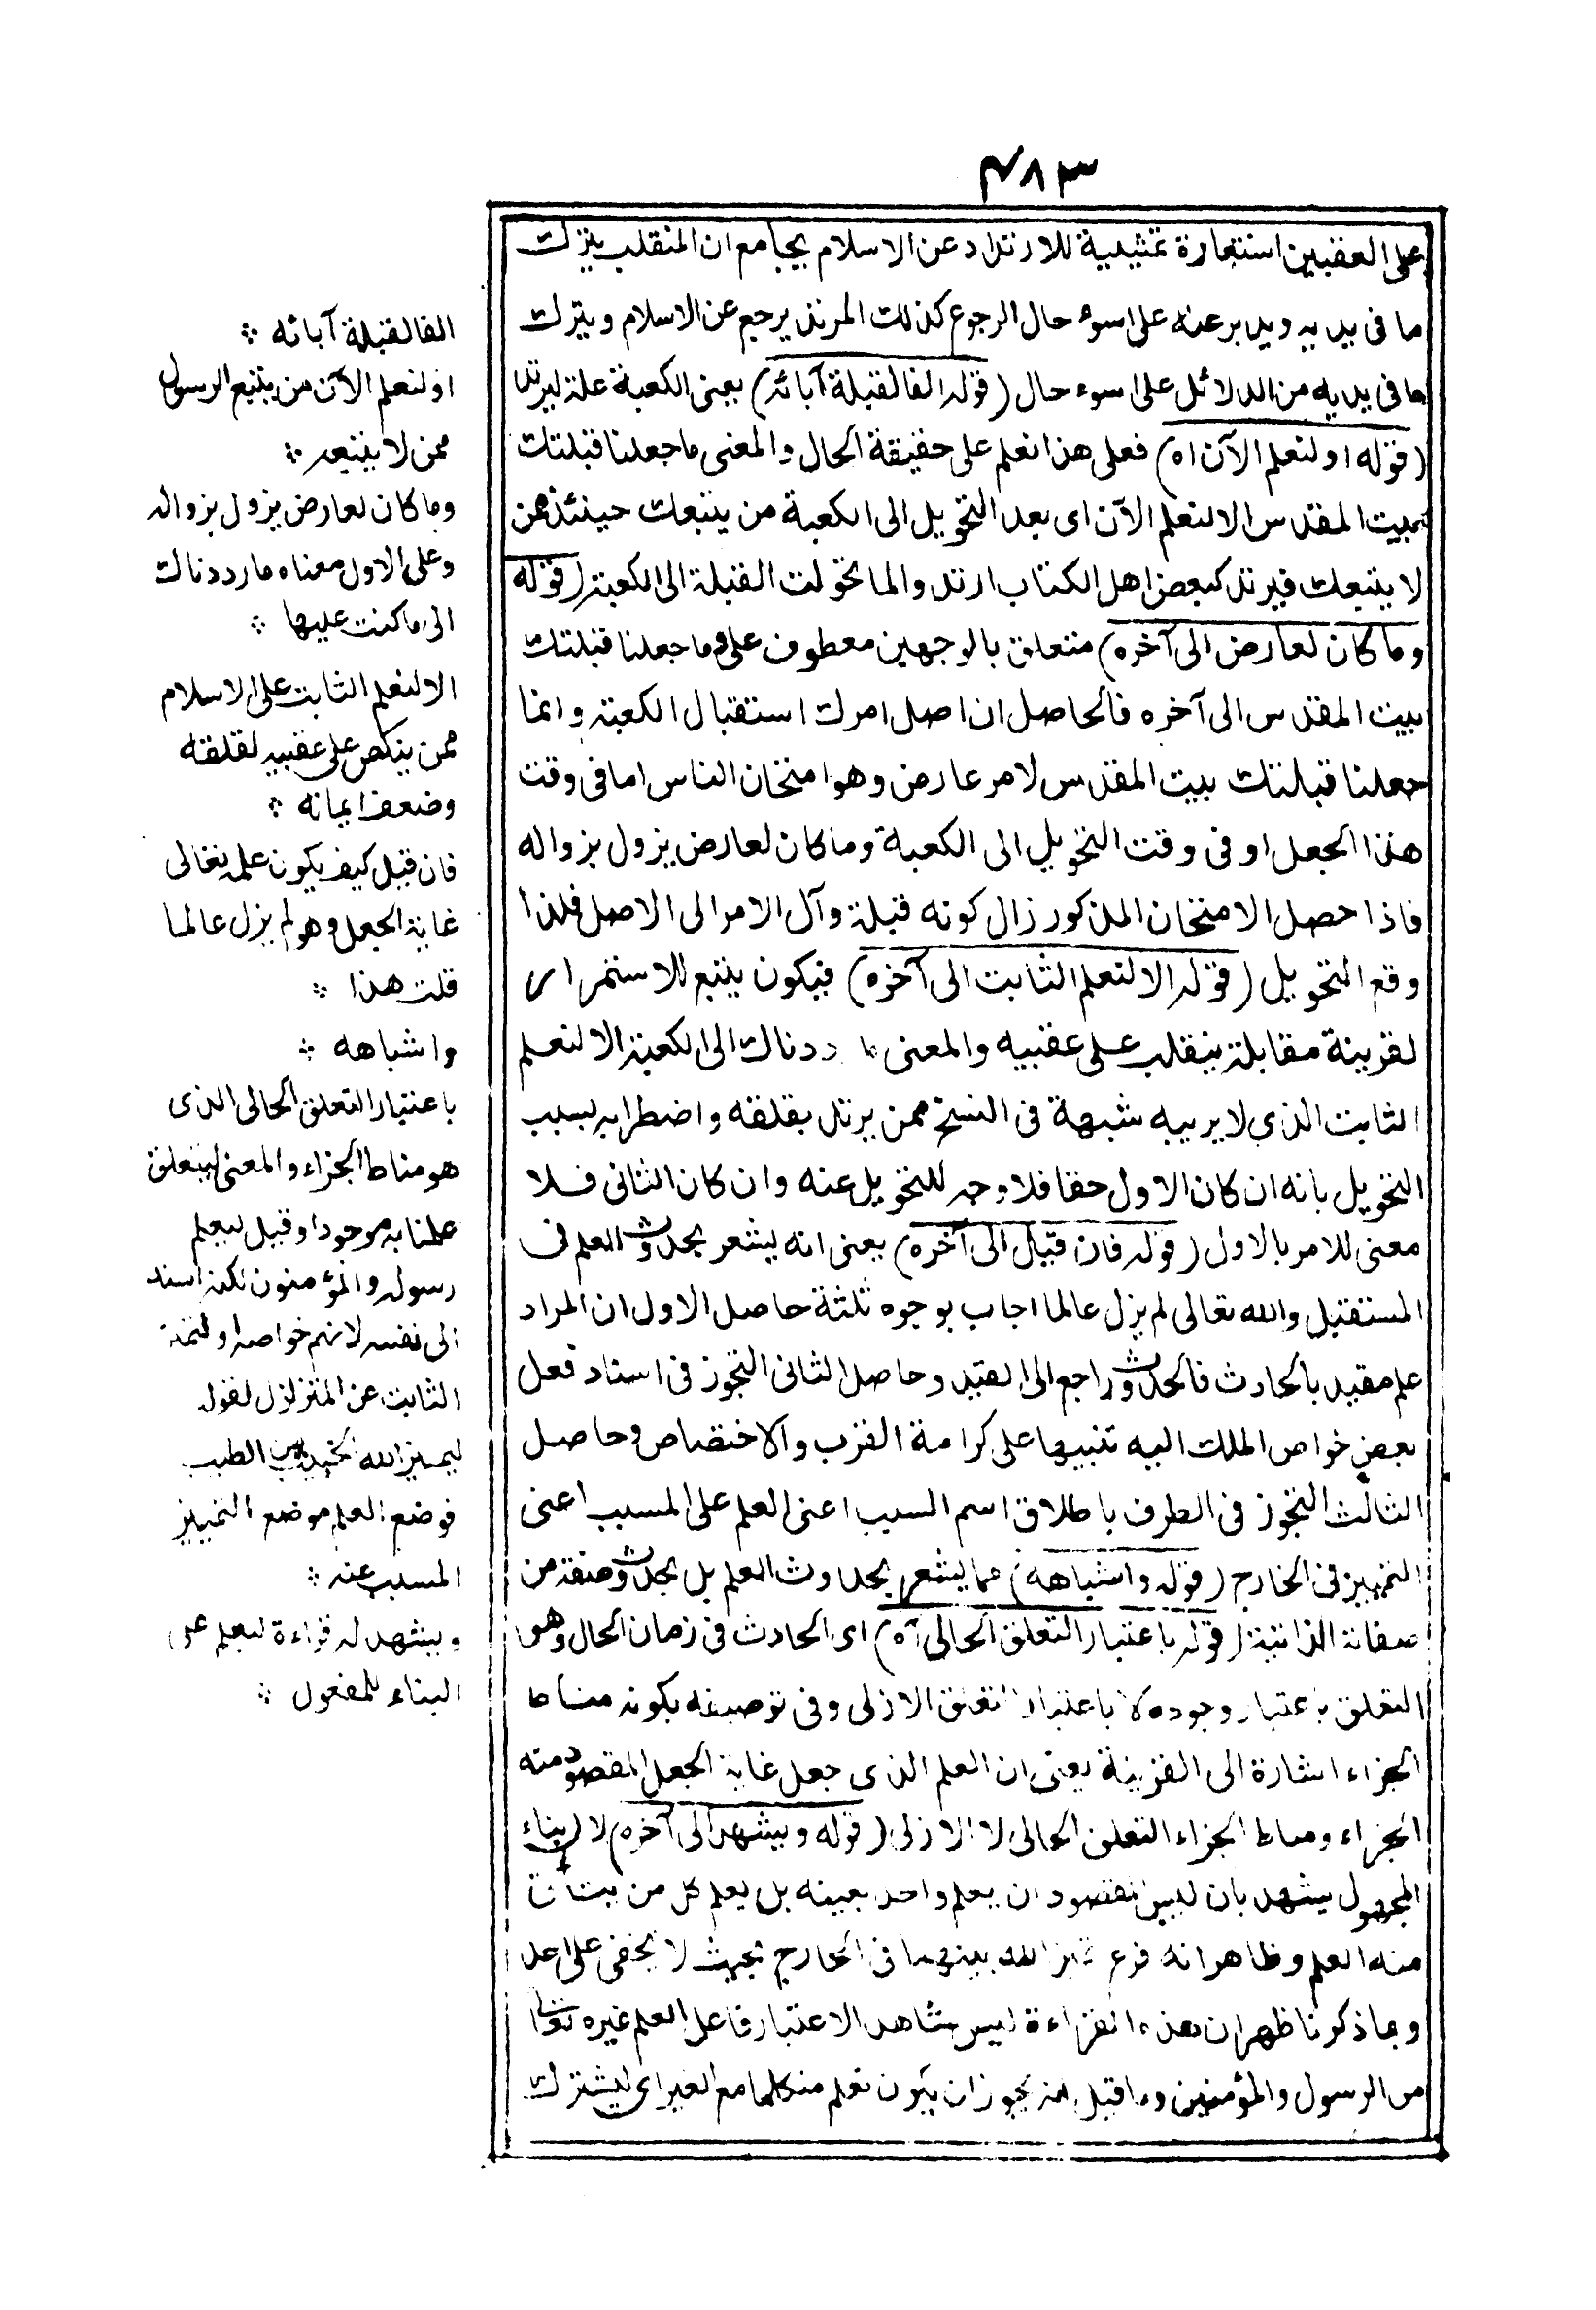 ٤٨٣
على العقبين استعارة تمثيلية للارتداد عن الاسلام بجامع ان المنقلب يترك
ما فى يديه ويدبر عنه على اسوء حال الرجوع كذلك المرتد يرجع عن الاسلام ويترك
ما فى يديه من الدلائل على اسوء حال (قوله الفا لقبلة آبائه) يعنى الكعبة علة ليرتد
(قوله او لنعلم الآن اه) فعلى هذا نعلم على حقيقة الحال والمعنى ما جعلنا قبلتك
بيت المقدس الا لنعلم الآن اى بعد التحويل الى الكعبة من يتبعك حينئذ ممن
لا يتبعك فيرتد كبعض اهل الكتاب ارتد والما تحولت القبلة الى الكعبة (قوله
وما كان لعارض الى آخره) متعلق بالوجهين معطوف على وما جعلنا قبلتك
بيت المقدس الى آخره فالحاصل ان اصل امرك استقبال الكعبة وانما
جعلنا قبلتك بيت المقدس لامر عارض وهو امتحان الناس اما فى وقت
هذا الجعل او فى وقت التحويل الى الكعبة وما كان لعارض يزول بزواله
فاذا حصل الامتحان المذكور زال كونه قبلة وآل الامر الى الاصل فلذا
وقع التحويل (قوله الا لنعلم الثابت الى آخره) فيكون يتبع للاستمرار
لقرينة مقابلة ينقلب على عقبيه والمعنى ما رددناك الى الكعبة الا لنعلم
الثابت الذى لا يريبه شبهة فى النسخ ممن يرتد بقلقه واضطرابه بسبب
التحويل بانه ان كان الاول حقا فلا وجه للتحويل عنه وان كان الثانى فلا
معنى للامر بالاول (قوله فان قيل الى آخره) يعنى انه يشعر بحدوث العلم فى
المستقبل والله تعالى لم يزل عالما اجاب بوجوه ثلثة حاصل الاول ان المراد
علم مقيد بالحادث فالحدوث راجع الى القيد وحاصل الثانى التجوز فى اسناد فعل
بعض خواص الملك اليه تنبيها على كرامة القرب والاختصاص وحاصل
الثالث التجوز فى الطرف باطلاق اسم السبب اعنى العلم على المسبب اعنى
التمييز فى الخارج (قوله واشباهه) مما يشعر بحدوث العلم بل بحدوث صفة من
صفاته الذاتية (قوله باعتبار التعلق الحالى اه) اى الحادث فى زمان الحال وهو
التعلق باعتبار وجوده لا باعتبار التعلق الازلى وفى توصيفه بكونه مناط
الجزاء اشارة الى القرينة يعنى ان العلم الذى جعل غاية الجعل المقصود منه
الجزاء ومناط الجزاء التعلق الحالى لا الازلى (قوله ويشهد الى آخره) لا بناء
المجهول يشهد بان ليس المقصود ان يعلم واحد بعينه بل يعلم كل من يتأتى
منه العلم وظاهر انه فرع تميز الله بينهما فى الخارج بحيث لا يخفى على احد
وبما ذكرنا ظهر ان هذه القراءة ليس شاهد الاعتبار فاعل العلم غيره تعالى
من الرسول والمؤمنين وما قيل انه يجوز ان يكون نعلم متكلما مع الغير اى ليشترك
الفا لقبلة آبائه ∴
او لنعلم الآن من يتبع الرسول
ممن لا يتبعه ∴
وما كان لعارض يزول بزواله
وعلى الاول معناه ما رددناك
الى ما كنت عليها ∴
الا لنعلم الثابت على الاسلام
ممن ينكص على عقبيه لقلقه
وضعف ايمانه ∴
فان قيل كيف يكون علمه تعالى
غاية الجعل وهو لم يزل عالما
قلت هذا ∴
واشباهه ∴
باعتبار التعلق الحالى الذى
هو مناط الجزاء والمعنى ليتعلق
علمنا به موجودا وقيل ليعلم
رسوله والمؤمنون لكنه اسند
الى نفسه لانهم خواصه او لتميز
الثابت عن المتزلزل لقوله
ليميز الله الخبيث من الطيب
فوضع العلم موضع التمييز
المسبب عنه ∴
ويشهد له قراءة ليعلم على
البناء للمفعول ∴